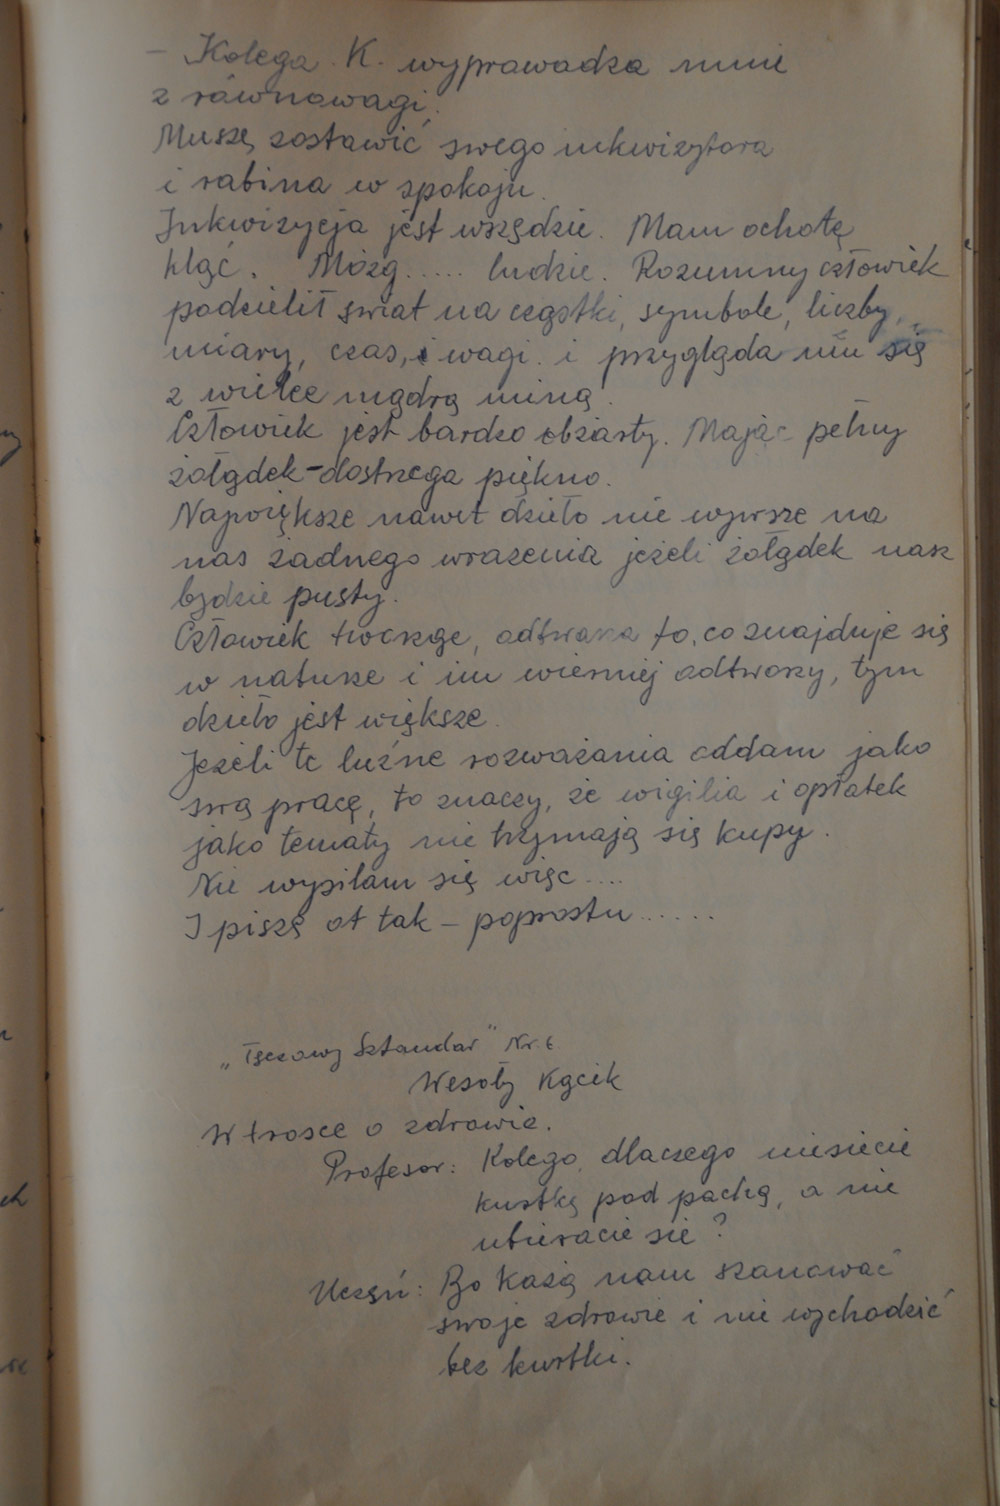 – Kolega K. wyprowadza mnie
z równowagi.
Muszę zostawić swego inkwizytora
i rabina w spokoju.
Inkwizycja jest wszędzie. Mam ochotę
kląć. Mózg..... ludzie. Rozumny człowiek
podzielił świat na cząstki, symbole, liczby,
miary, czas, i wagi. i przygląda mu się
z wielce mądrą miną.
Człowiek jest bardzo obżarty. Mając pełny
żołądek – dostrzega piękno.
Największe nawet dzieło nie wywrze na
nas żadnego wrażenia jeżeli żołądek nasz
będzie pusty.
Człowiek tworząc, odtwarza to, co znajduje się
w naturze i im wierniej odtworzy, tym
dzieło jest większe.
Jeżeli te luźne rozważania oddam jako
swą pracę, to znaczy, że wigilia i opłatek
jako tematy nie trzymają się kupy.
Nie wysilam się więc....
I piszę ot tak – poprostu......
„Tęczowy Sztandar" Nr. 6
Wesoły Kącik
W trosce o zdrowie.
Profesor: Kolego, dlaczego niesiecie
kurtkę pod pachą, a nie
ubieracie się?
Uczeń: Bo każą nam szanować
swoje zdrowie i nie wychodzić
bez kurtki.